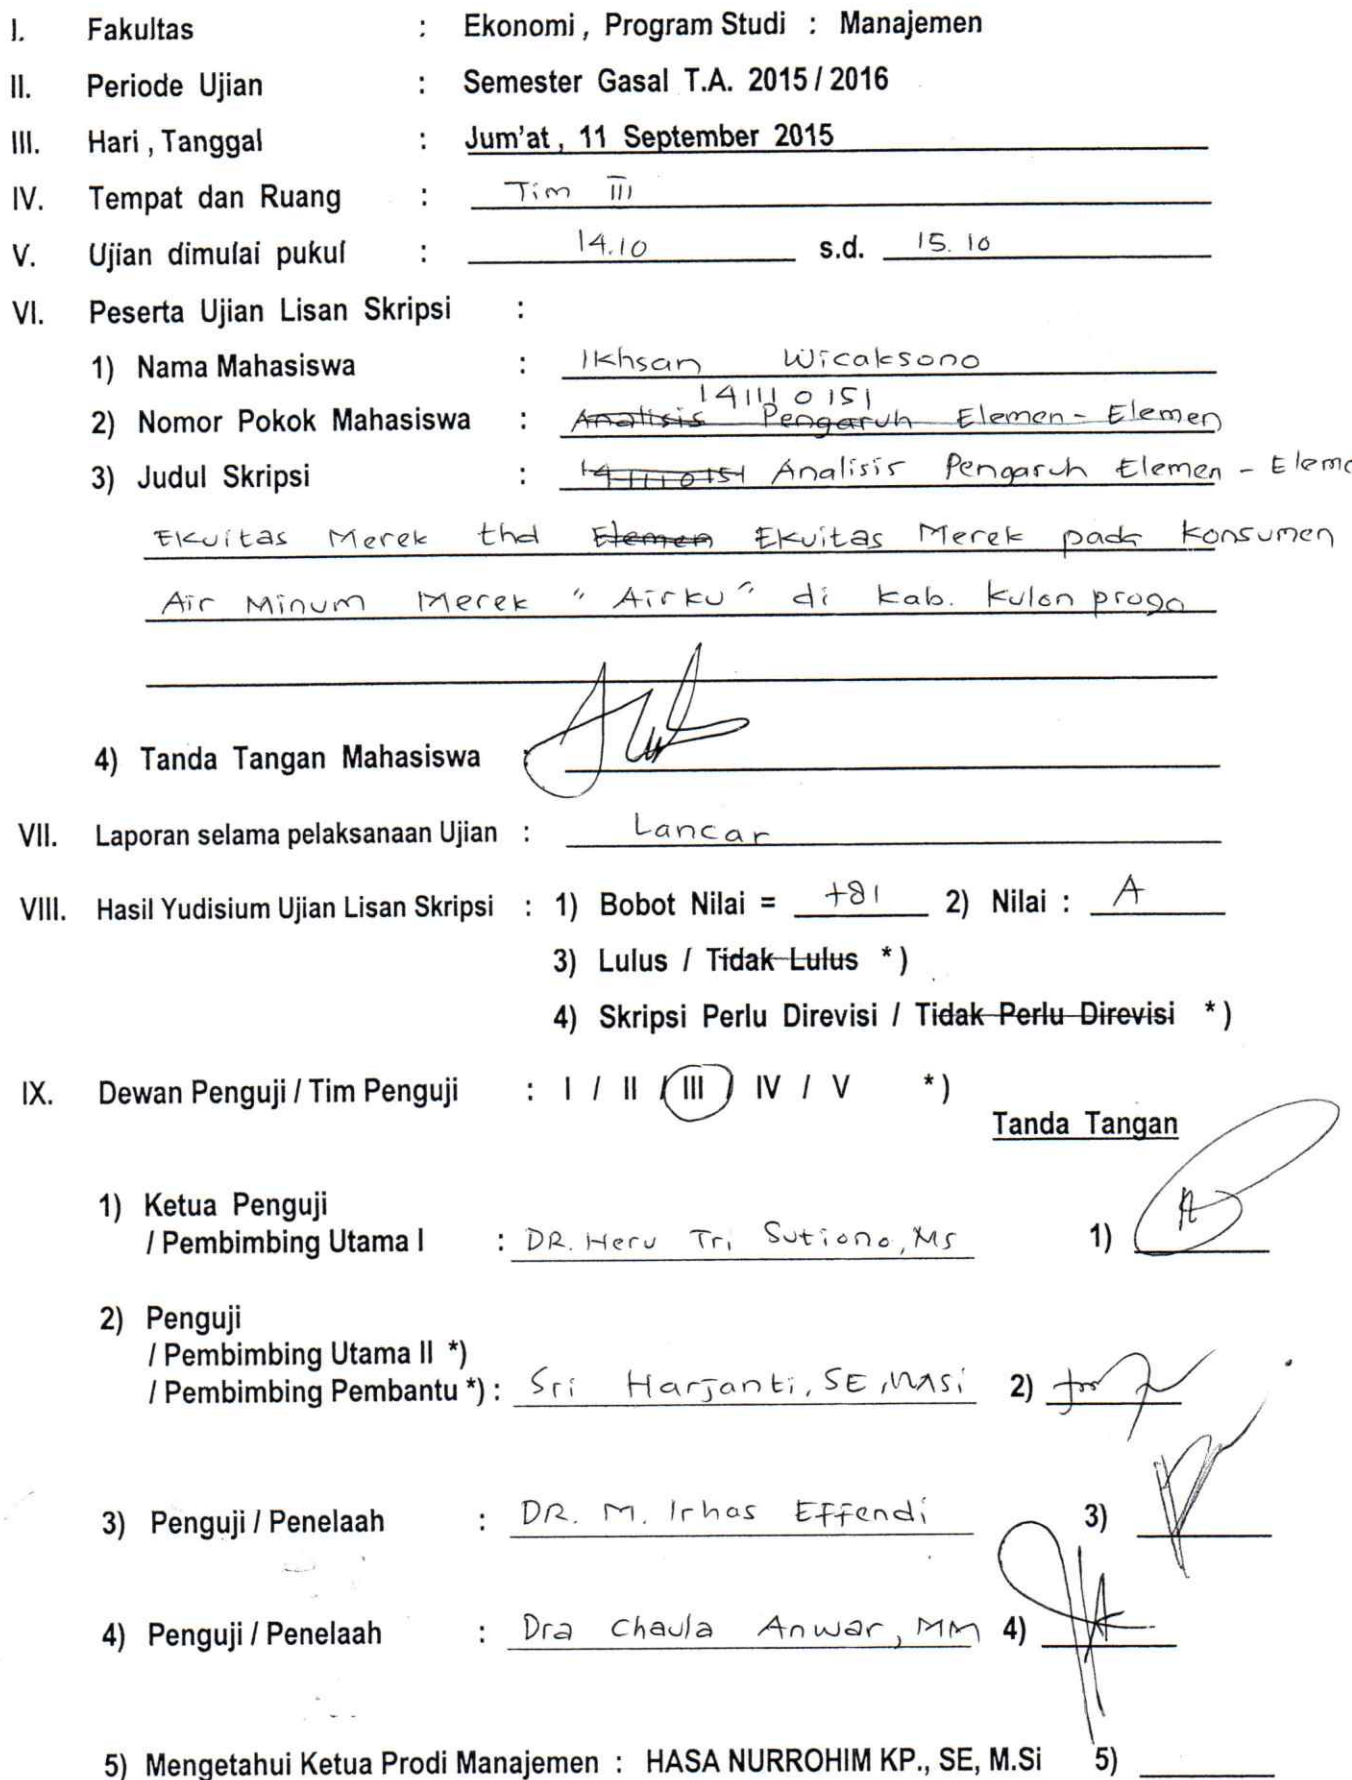 I. Fakultas : Ekonomi , Program Studi : Manajemen
II. Periode Ujian : Semester Gasal T.A. 2015 / 2016
III. Hari , Tanggal : Jum'at , 11 September 2015
IV. Tempat dan Ruang : Tim III
V. Ujian dimulai pukul : 14.10 s.d. 15.10
VI. Peserta Ujian Lisan Skripsi :
1) Nama Mahasiswa : Ikhsan Wicaksono
141110151
2) Nomor Pokok Mahasiswa : Analisis Pengaruh Elemen - Elemen
3) Judul Skripsi : 141110151 Analisis Pengaruh Elemen - Eleme
Ekuitas Merek thd Elemen Ekuitas Merek pada Konsumen
Air Minum Merek " Airku " di Kab. Kulon progo
4) Tanda Tangan Mahasiswa :
VII. Laporan selama pelaksanaan Ujian : Lancar
VIII. Hasil Yudisium Ujian Lisan Skripsi : 1) Bobot Nilai = +81 2) Nilai : A
3) Lulus / Tidak Lulus *)
4) Skripsi Perlu Direvisi / Tidak Perlu Direvisi *)
IX. Dewan Penguji / Tim Penguji : I / II / III / IV / V *)
Tanda Tangan
1) Ketua Penguji
/ Pembimbing Utama I : DR. Heru Tri Sutiono, Ms 1)
2) Penguji
/ Pembimbing Utama II *)
/ Pembimbing Pembantu *) : Sri Harjanti, SE, MSi 2)
3) Penguji / Penelaah : DR. M. Irhas Effendi 3)
4) Penguji / Penelaah : Dra Chaula Anwar, MM 4)
5) Mengetahui Ketua Prodi Manajemen : HASA NURROHIM KP., SE, M.Si 5)